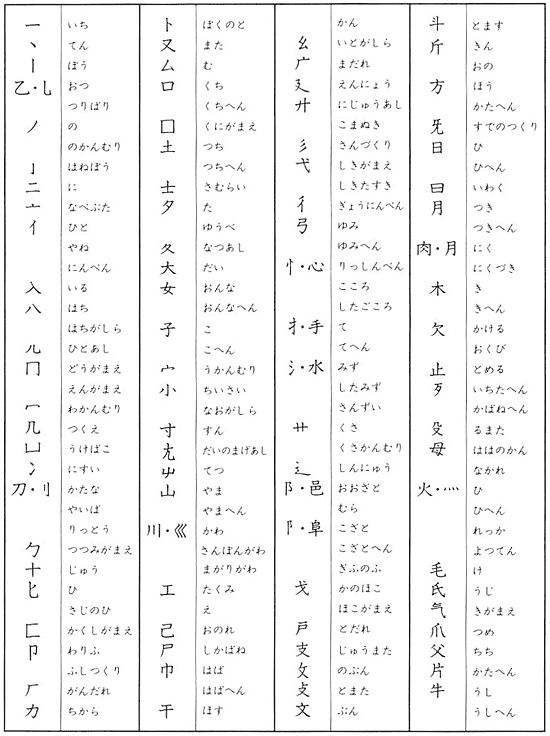 一 いち
丶 てん
丨 ぼう
乙・乚 おつ
つりばり
ノ の
のかんむり
亅 はねぼう
二 に
亠 なべぶた
亻 ひと
やね
にんべん
入 いる
八 はち
はちがしら
儿 ひとあし
冂 どうがまえ
えんがまえ
冖 わかんむり
几 つくえ
凵 うけばこ
冫 にすい
刀・刂 かたな
やいば
りっとう
勹 つつみがまえ
十 じゅう
匕 ひ
さじのひ
匚 かくしがまえ
卩 わりふ
ふしつくり
厂 がんだれ
力 ちから
卜 ぼくのと
又 また
厶 む
口 くち
くちへん
囗 くにがまえ
土 つち
つちへん
士 さむらい
夕 た
ゆうべ
夂 なつあし
大 だい
女 おんな
おんなへん
子 こ
こへん
宀 うかんむり
小 ちいさい
なおがしら
寸 すん
尢 だいのまげあし
屮 てつ
山 やま
やまへん
川・巛 かわ
さんぼんがわ
まがりがわ
工 たくみ
え
己 おのれ
尸 しかばね
巾 はば
はばへん
干 ほす
かん
幺 いとがしら
广 まだれ
廴 えんにょう
廾 にじゅうあし
こまぬき
彡 さんづくり
弋 しきがまえ
しきたすき
彳 ぎょうにんべん
弓 ゆみ
ゆみへん
忄・心 りっしんべん
こころ
したごころ
扌・手 て
てへん
氵・水 みず
したみず
さんずい
艹 くさ
くさかんむり
辶 しんにゅう
阝・邑 おおざと
むら
阝・阜 こざと
こざとへん
ぎふのふ
戈 かのほこ
ほこがまえ
戸 とだれ
支 じゅうまた
攵 のぶん
攴 とまた
文 ぶん
斗 とます
斤 きん
おの
方 ほう
かたへん
旡 すでのつくり
日 ひ
ひへん
曰 いわく
月 つき
つきへん
肉・月 にく
にくづき
木 き
きへん
欠 かける
おくび
止 とめる
歹 いちたへん
かばねへん
殳 るまた
母 ははのかん
なかれ
火・灬 ひ
ひへん
れっか
よつてん
毛 け
氏 うじ
气 きがまえ
爪 つめ
父 ちち
片 かたへん
牛 うし
うしへん